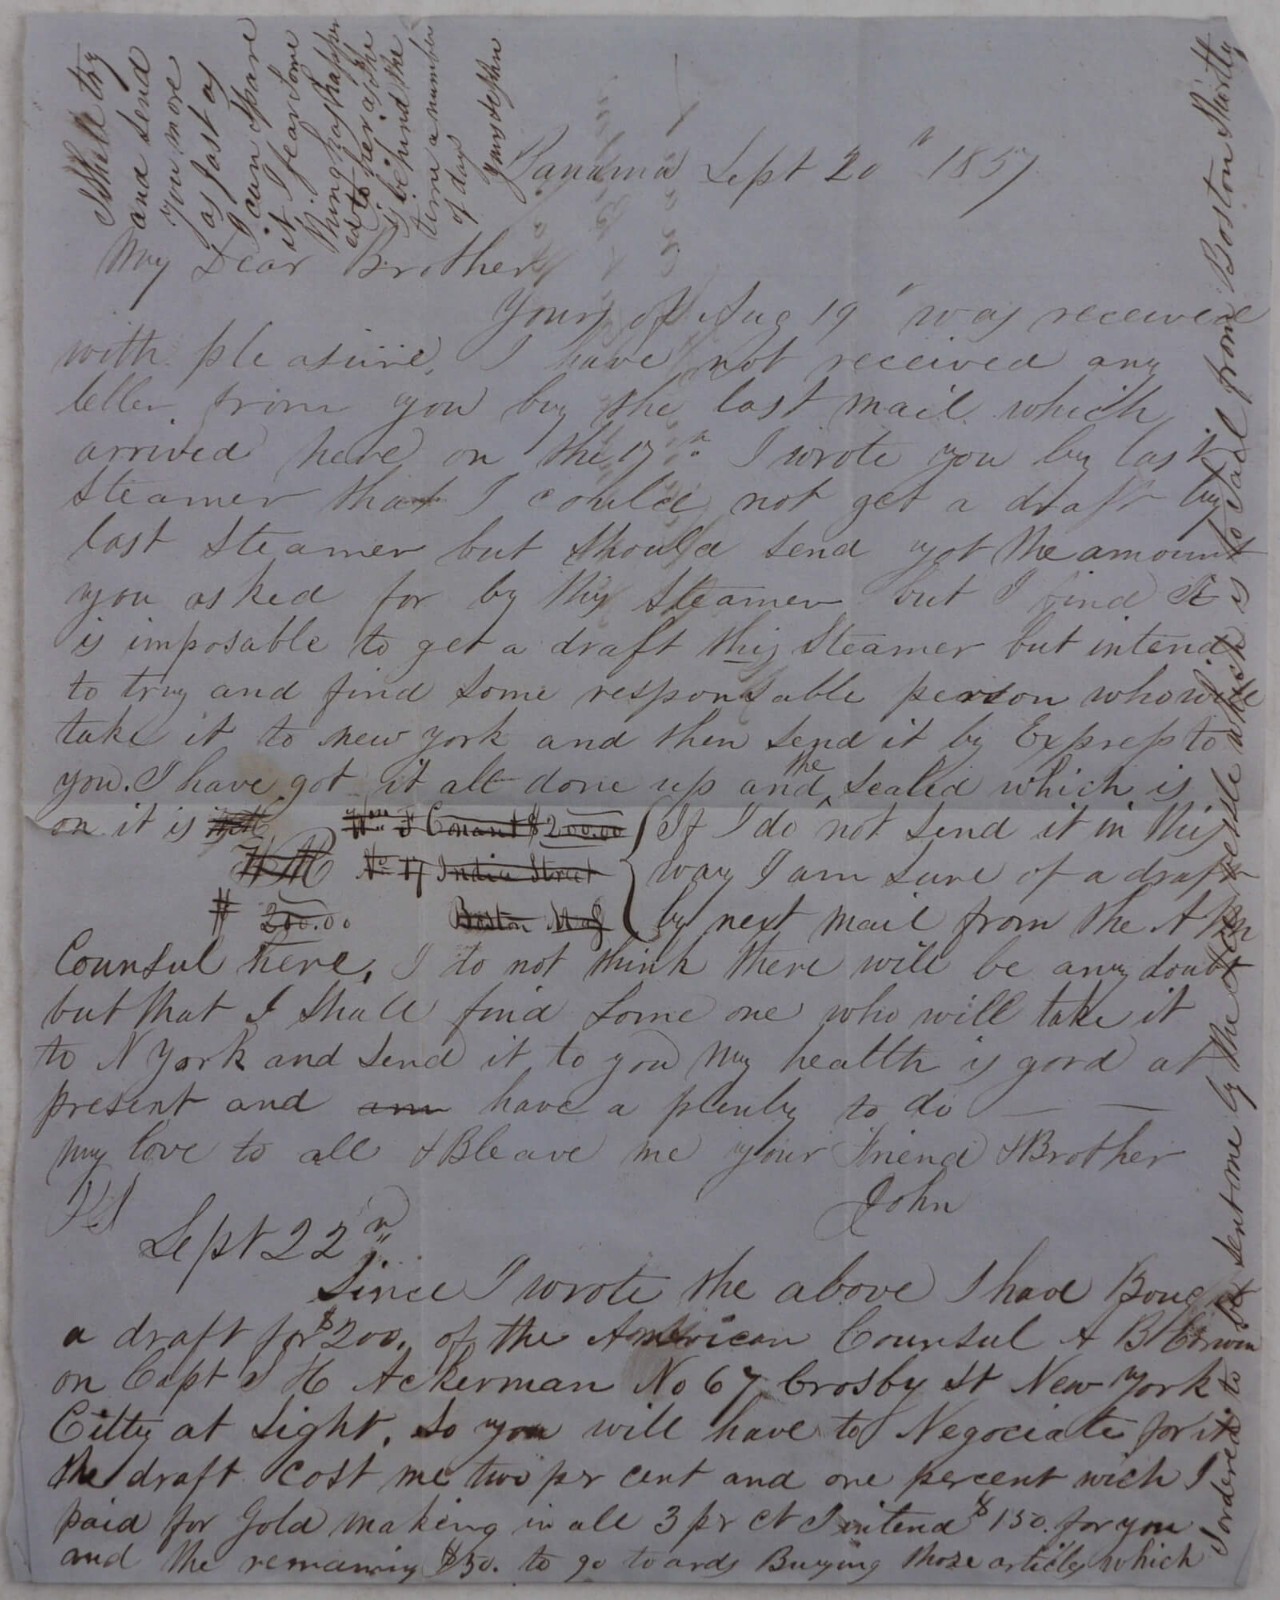 Panama Sept 20" 1857
My Dear Brother
Yours of Aug 19' was received
with pleasure. I have not received any
letter from you by the last mail which
arrived here on the 17" I wrote you by last
Steamer that I could not get a draft by
last Steamer but should send yot the amount
you asked for by this Steamer but I find it
is imposable to get a draft this Steamer but intend
to try and find some responsable person who will
take it to new york and then send it by Express to
you. I have got it all done up and the sealed which is
on it is
Conant $200.00
{ If I do not send it in this
No 17 India Street
way I am sure of a draft
$ 200.00 Boston Mas
by next mail from the Am
Counsul here. I do not think there will be any doubt
but that I shall find some one who will take it
to N York and send it to you My health is good at
present and am have a plenty to do — —
my love to all & Bleave me your Friend & Brother
John
PS
Sept 22"
Since I wrote the above I have Boug
a draft for $200. of the American Counsul A B Corwin
on Capt J H Ackerman No 67 Crosby St New York
Citty at Sight. So you will have to Negociate for it
the draft cost me two pr cent and one percent wich I
paid for Gold making in all 3 pr ct I intend $150. for you
and the remaining $50. to go to ards Buying those articles which
I ordered to be sent me by the vessle which is to sail from Boston Shortly
I shall try
and send
you more
as fast as
I can spare
it I fear some
thing has happen
ed to her as she
is behind the
time a number
of days
yours Jephen